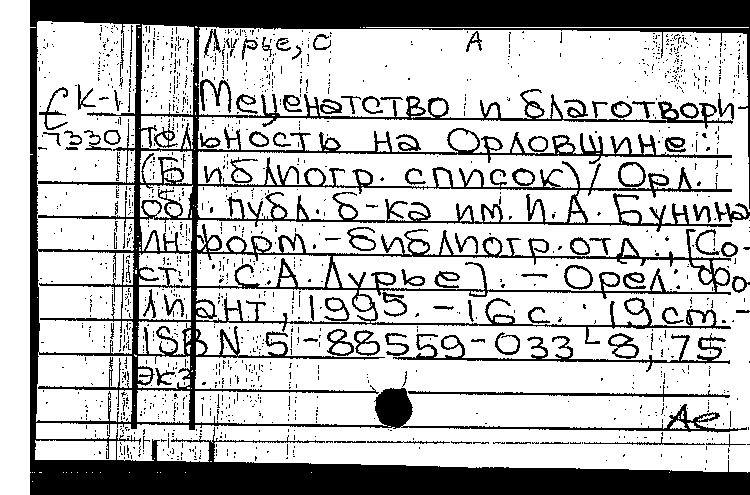 Лурье, С А
К-1 Меценатство и благотвори-
7330 тельность на Орловщине:
(Библиогр. список) / Орл.
обл. публ. б-ка им. И.А. Бунина
Информ.-библиогр. отд.; [Со-
ст.: С.А. Лурье]. - Орел: Фо-
лиант, 1995. - 16 с.: 19 cm. -
ISBN 5-88559-033-8, 75
экз.
Ае